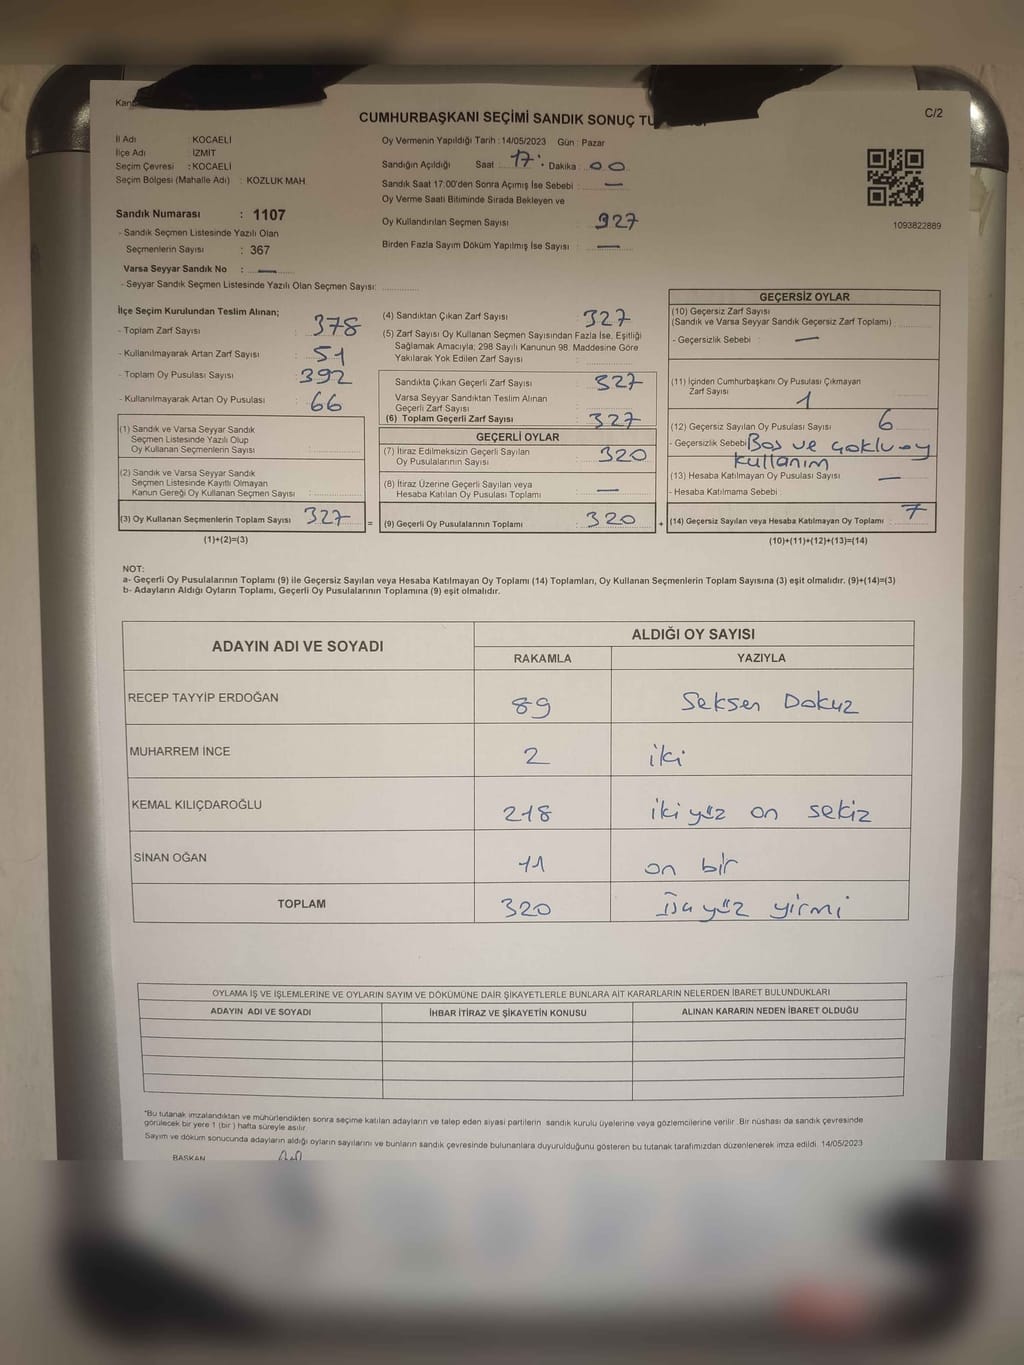 CUMHURBAŞKANI SEÇİMİ SANDIK SONUÇ
C/2
İl Adı : KOCAELİ
İlçe Adı : İZMİT
Seçim Çevresi : KOCAELİ
Seçim Bölgesi (Mahalle Adı) : KOZLUK MAH.
Sandık Numarası : 1107
- Sandık Seçmen Listesinde Yazılı Olan
Seçmenlerin Sayısı : 367
Varsa Seyyar Sandık No : —
- Seyyar Sandık Seçmen Listesinde Yazılı Olan Seçmen Sayısı:
Oy Vermenin Yapıldığı Tarih : 14/05/2023 Gün : Pazar
Sandığın Açıldığı Saat : 17: Dakika : 00
Sandık Saat 17.00'den Sonra Açılmış İse Sebebi : —
Oy Verme Saati Bitiminde Sırada Bekleyen ve
Oy Kullandırılan Seçmen Sayısı 327
Birden Fazla Sayım Döküm Yapılmış İse Sayısı : —
1093822889
İlçe Seçim Kurulundan Teslim Alınan;
- Toplam Zarf Sayısı : 378
- Kullanılmayarak Artan Zarf Sayısı : 51
- Toplam Oy Pusulası Sayısı : 392
- Kullanılmayarak Artan Oy Pusulası : 66
(1) Sandık ve Varsa Seyyar Sandık
Seçmen Listesinde Yazılı Olup
Oy Kullanan Seçmenlerin Sayısı :
(2) Sandık ve Varsa Seyyar Sandık
Seçmen Listesinde Kayıtlı Olmayan
Kanun Gereği Oy Kullanan Seçmen Sayısı :
(3) Oy Kullanan Seçmenlerin Toplam Sayısı 327
(1)+(2)=(3)
=
(4) Sandıktan Çıkan Zarf Sayısı : 327
(5) Zarf Sayısı Oy Kullanan Seçmen Sayısından Fazla İse, Eşitliği
Sağlamak Amacıyla; 298 Sayılı Kanunun 98. Maddesine Göre
Yakılarak Yok Edilen Zarf Sayısı :
Sandıkta Çıkan Geçerli Zarf Sayısı : 327
Varsa Seyyar Sandıktan Teslim Alınan
Geçerli Zarf Sayısı :
(6) Toplam Geçerli Zarf Sayısı : 327
GEÇERLİ OYLAR
(7) İtiraz Edilmeksizin Geçerli Sayılan
Oy Pusulalarının Sayısı : 320
(8) İtiraz Üzerine Geçerli Sayılan veya
Hesaba Katılan Oy Pusulası Toplamı : —
(9) Geçerli Oy Pusulalarının Toplamı : 320
+
GEÇERSİZ OYLAR
(10) Geçersiz Zarf Sayısı
(Sandık ve Varsa Seyyar Sandık Geçersiz Zarf Toplamı) :
- Geçersizlik Sebebi : —
(11) İçinden Cumhurbaşkanı Oy Pusulası Çıkmayan
Zarf Sayısı : 1
(12) Geçersiz Sayılan Oy Pusulası Sayısı : 6
- Geçersizlik Sebebi Boş ve çoklu oy
kullanım
(13) Hesaba Katılmayan Oy Pusulası Sayısı : —
- Hesaba Katılmama Sebebi :
(14) Geçersiz Sayılan veya Hesaba Katılmayan Oy Toplamı : 7
(10)+(11)+(12)+(13)=(14)
NOT:
a- Geçerli Oy Pusulalarının Toplamı (9) ile Geçersiz Sayılan veya Hesaba Katılmayan Oy Toplamı (14) Toplamları, Oy Kullanan Seçmenlerin Toplam Sayısına (3) eşit olmalıdır. (9)+(14)=(3)
b- Adayların Aldığı Oyların Toplamı, Geçerli Oy Pusulalarının Toplamına (9) eşit olmalıdır.
ADAYIN ADI VE SOYADI
ALDIĞI OY SAYISI
RAKAMLA YAZIYLA
RECEP TAYYİP ERDOĞAN 89 Seksen Dokuz
MUHARREM İNCE 2 iki
KEMAL KILIÇDAROĞLU 218 iki yüz on sekiz
SİNAN OĞAN 11 on bir
TOPLAM 320 yüz yirmi
OYLAMA İŞ VE İŞLEMLERİNE VE OYLARIN SAYIM VE DÖKÜMÜNE DAİR ŞİKAYETLERLE BUNLARA AİT KARARLARIN NELERDEN İBARET BULUNDUKLARI
ADAYIN ADI VE SOYADI İHBAR İTİRAZ VE ŞİKAYETİN KONUSU ALINAN KARARIN NEDEN İBARET OLDUĞU
*Bu tutanak imzalandıktan ve mühürlendikten sonra seçime katılan adayların ve talep eden siyasi partilerin sandık kurulu üyelerine veya gözlemcilerine verilir. Bir nüshası da sandık çevresinde
görülecek bir yere 1 (bir) hafta süreyle asılır.
Sayım ve döküm sonucunda adayların aldığı oyların sayılarını ve bunların sandık çevresinde bulunanlara duyurulduğunu gösteren bu tutanak tarafımızdan düzenlenerek imza edildi. 14/05/2023
BAŞKAN